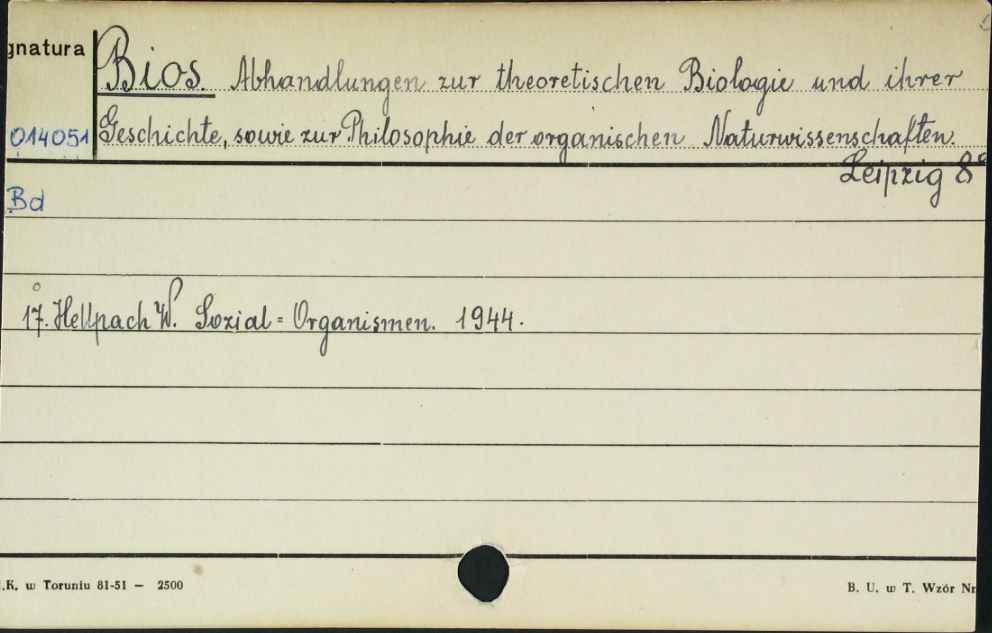 gnatura
Bios. Abhandlungen zur theoretischen Biologie und ihrer
014051 Geschichte, sowie zur Philosophie der organischen Naturwissenschaften.
Leipzig 8°
Bd
17. Hellpach W. Sozial=Organismen. 1944.
.K. w Toruniu 81-51 — 2500
B. U. w T. Wzór Nr